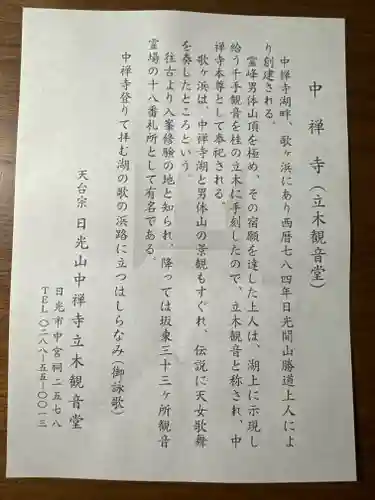 中禅寺（立木観音堂）
中禅寺湖畔、歌ヶ浜にあり西暦七八四年日光開山勝道上人によ
り創建される。
霊峰男体山頂を極め、その宿願を達した上人は、湖上に示現し
給う千手観音を桂の立木に手刻したので、立木観音と称され、中
禅寺本尊として奉祀される。
歌ヶ浜は、中禅寺湖と男体山の景観もすぐれ、伝説に天女歌舞
を奏したところという。
往古より入峯修験の地と知られ、降っては坂東三十三ヶ所観音
霊場の十八番札所として有名である。
中禅寺登りて拝む湖の歌の浜路に立つはしらなみ（御詠歌）
天台宗 日光山中禅寺立木観音堂
日光市中宮祠二五七八
TEL〇二八八-五五-〇〇一三